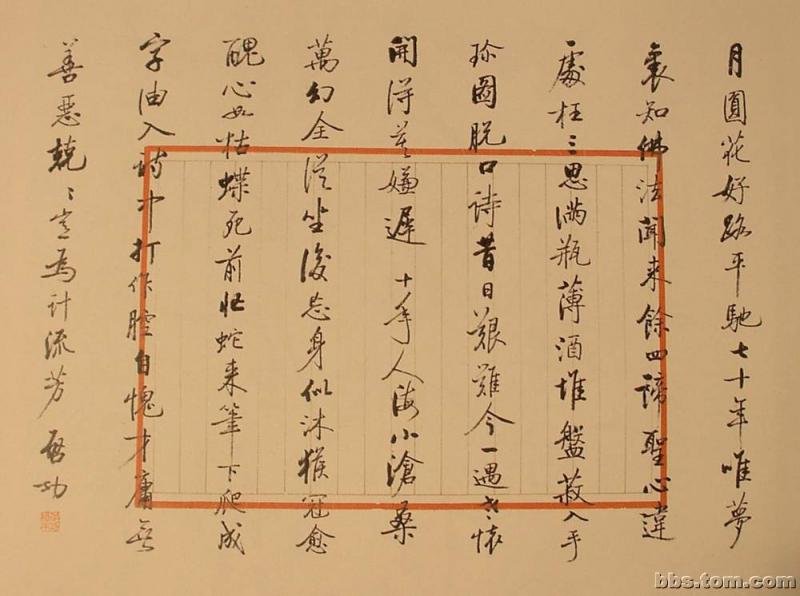 月圓花好路平馳七十年唯夢
裏知佛法聞來餘四諦聖心違
處枉三思滿瓶薄酒堆盤菽入手
珍圖脱口詩昔日艱難今一遇老懷
開得莫嫌遲 十年人海小滄桑
萬幻全從坐後忘身似沐猴冠愈
醜心如枯蝶死前忙蛇來筆下爬成
字油入詩中打作腔自愧才庸無
善惡兢〻豈為計流芳 啓功
bbs.tom.com